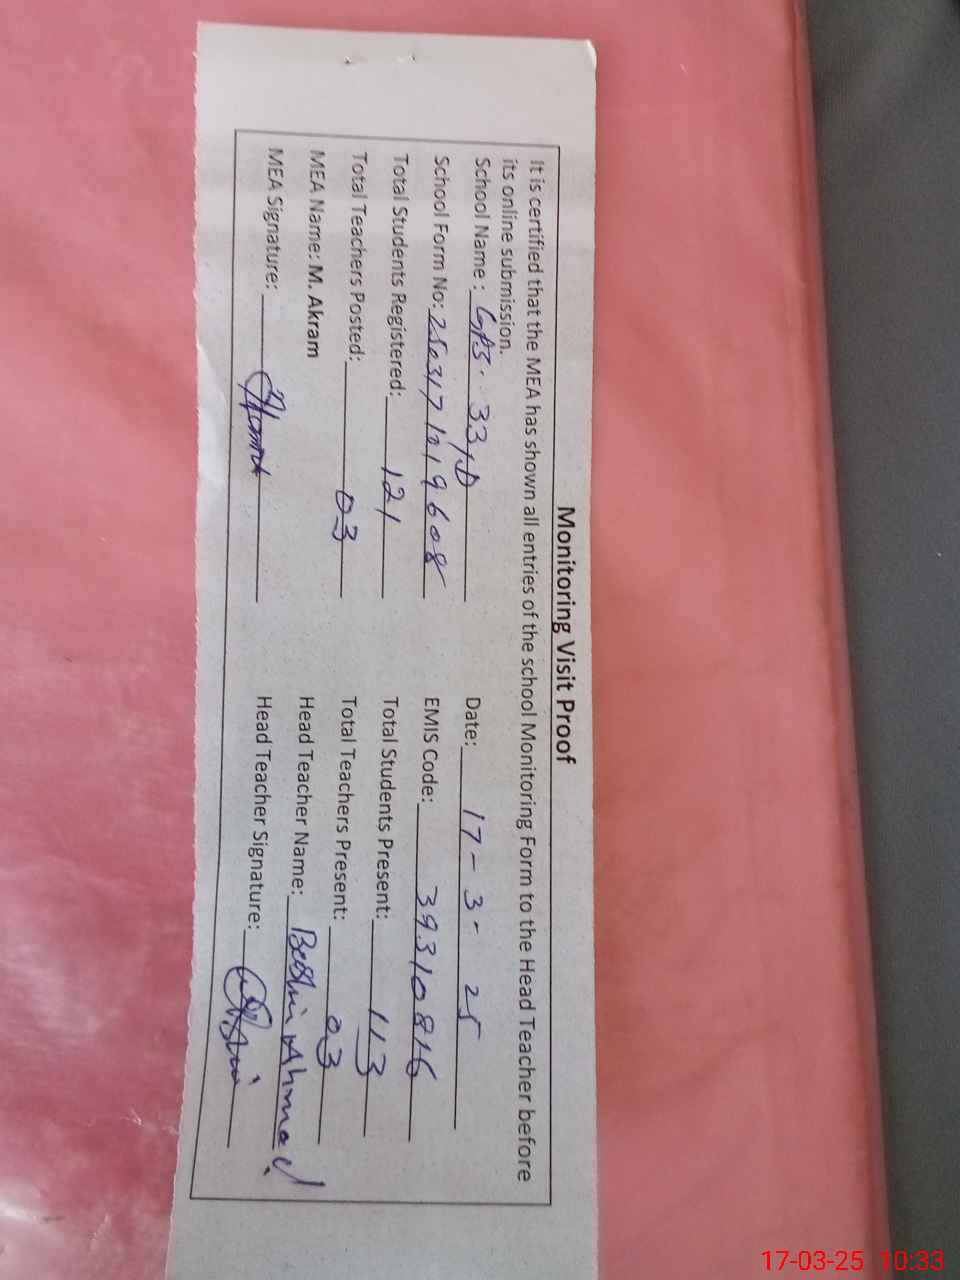 Monitoring Visit Proof
It is certified that the MEA has shown all entries of the school Monitoring Form to the Head Teacher before
its online submission.
School Name : GPS. 33/D Date: 17-3-25
School Form No: 2503171219608 EMIS Code: 39310816
Total Students Registered: 121 Total Students Present: 113
Total Teachers Posted: 03 Total Teachers Present: 03
MEA Name: M. Akram Head Teacher Name: Bashir Ahmad
MEA Signature: Head Teacher Signature:
17-03-25 10:33